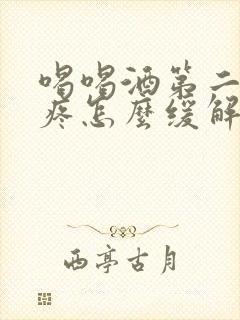 喝喝酒第二
疼怎麼缓解
西亭古月